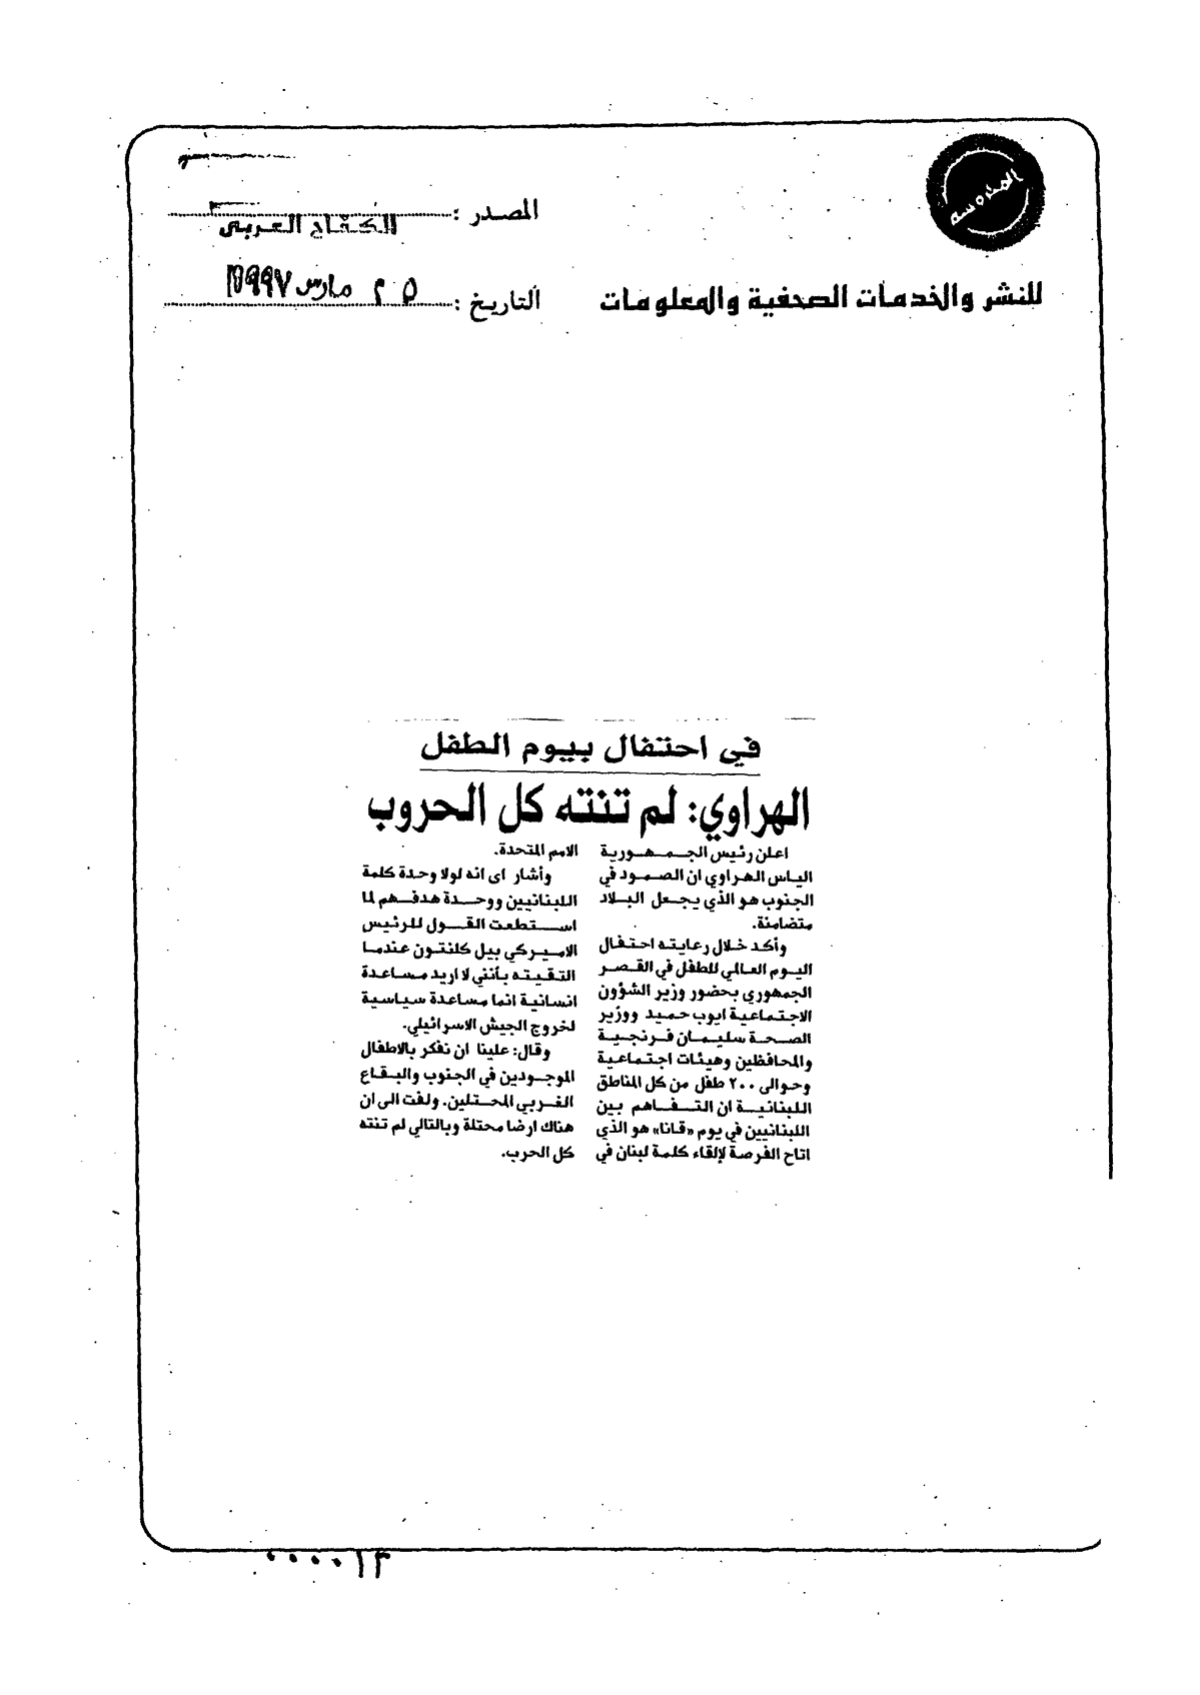 المحروسة
المصدر :
الكفاح العربى
للنشر والخدمات الصحفية والمعلومات
التاريخ :
٢٥ مارس ١٩٩٧
في احتفال بيوم الطفل
الهراوي: لم تنته كل الحروب
اعلن رئيس الجمهورية
الياس الهراوي ان الصمود في
الجنوب هو الذي يجعل البلاد
متضامنة.
وأكد خلال رعايته احتفال
اليوم العالمي للطفل في القصر
الجمهوري بحضور وزير الشؤون
الاجتماعية ايوب حميد ووزير
الصحة سليمان فرنجية
والمحافظين وهيئات اجتماعية
وحوالى ٢٠٠ طفل من كل المناطق
اللبنانية ان التفاهم بين
اللبنانيين في يوم «قانا» هو الذي
اتاح الفرصة لإلقاء كلمة لبنان في
الامم المتحدة.
وأشار اى انه لولا وحدة كلمة
اللبنانيين ووحدة هدفهم لما
استطعت القول للرئيس
الاميركي بيل كلنتون عندما
التقيته بأنني لا اريد مساعدة
انسانية انما مساعدة سياسية
لخروج الجيش الاسرائيلي.
وقال: علينا ان نفكر بالاطفال
الموجودين في الجنوب والبقاع
الغربي المحتلين. ولفت الى ان
هناك ارضا محتلة وبالتالي لم تنته
كل الحرب.